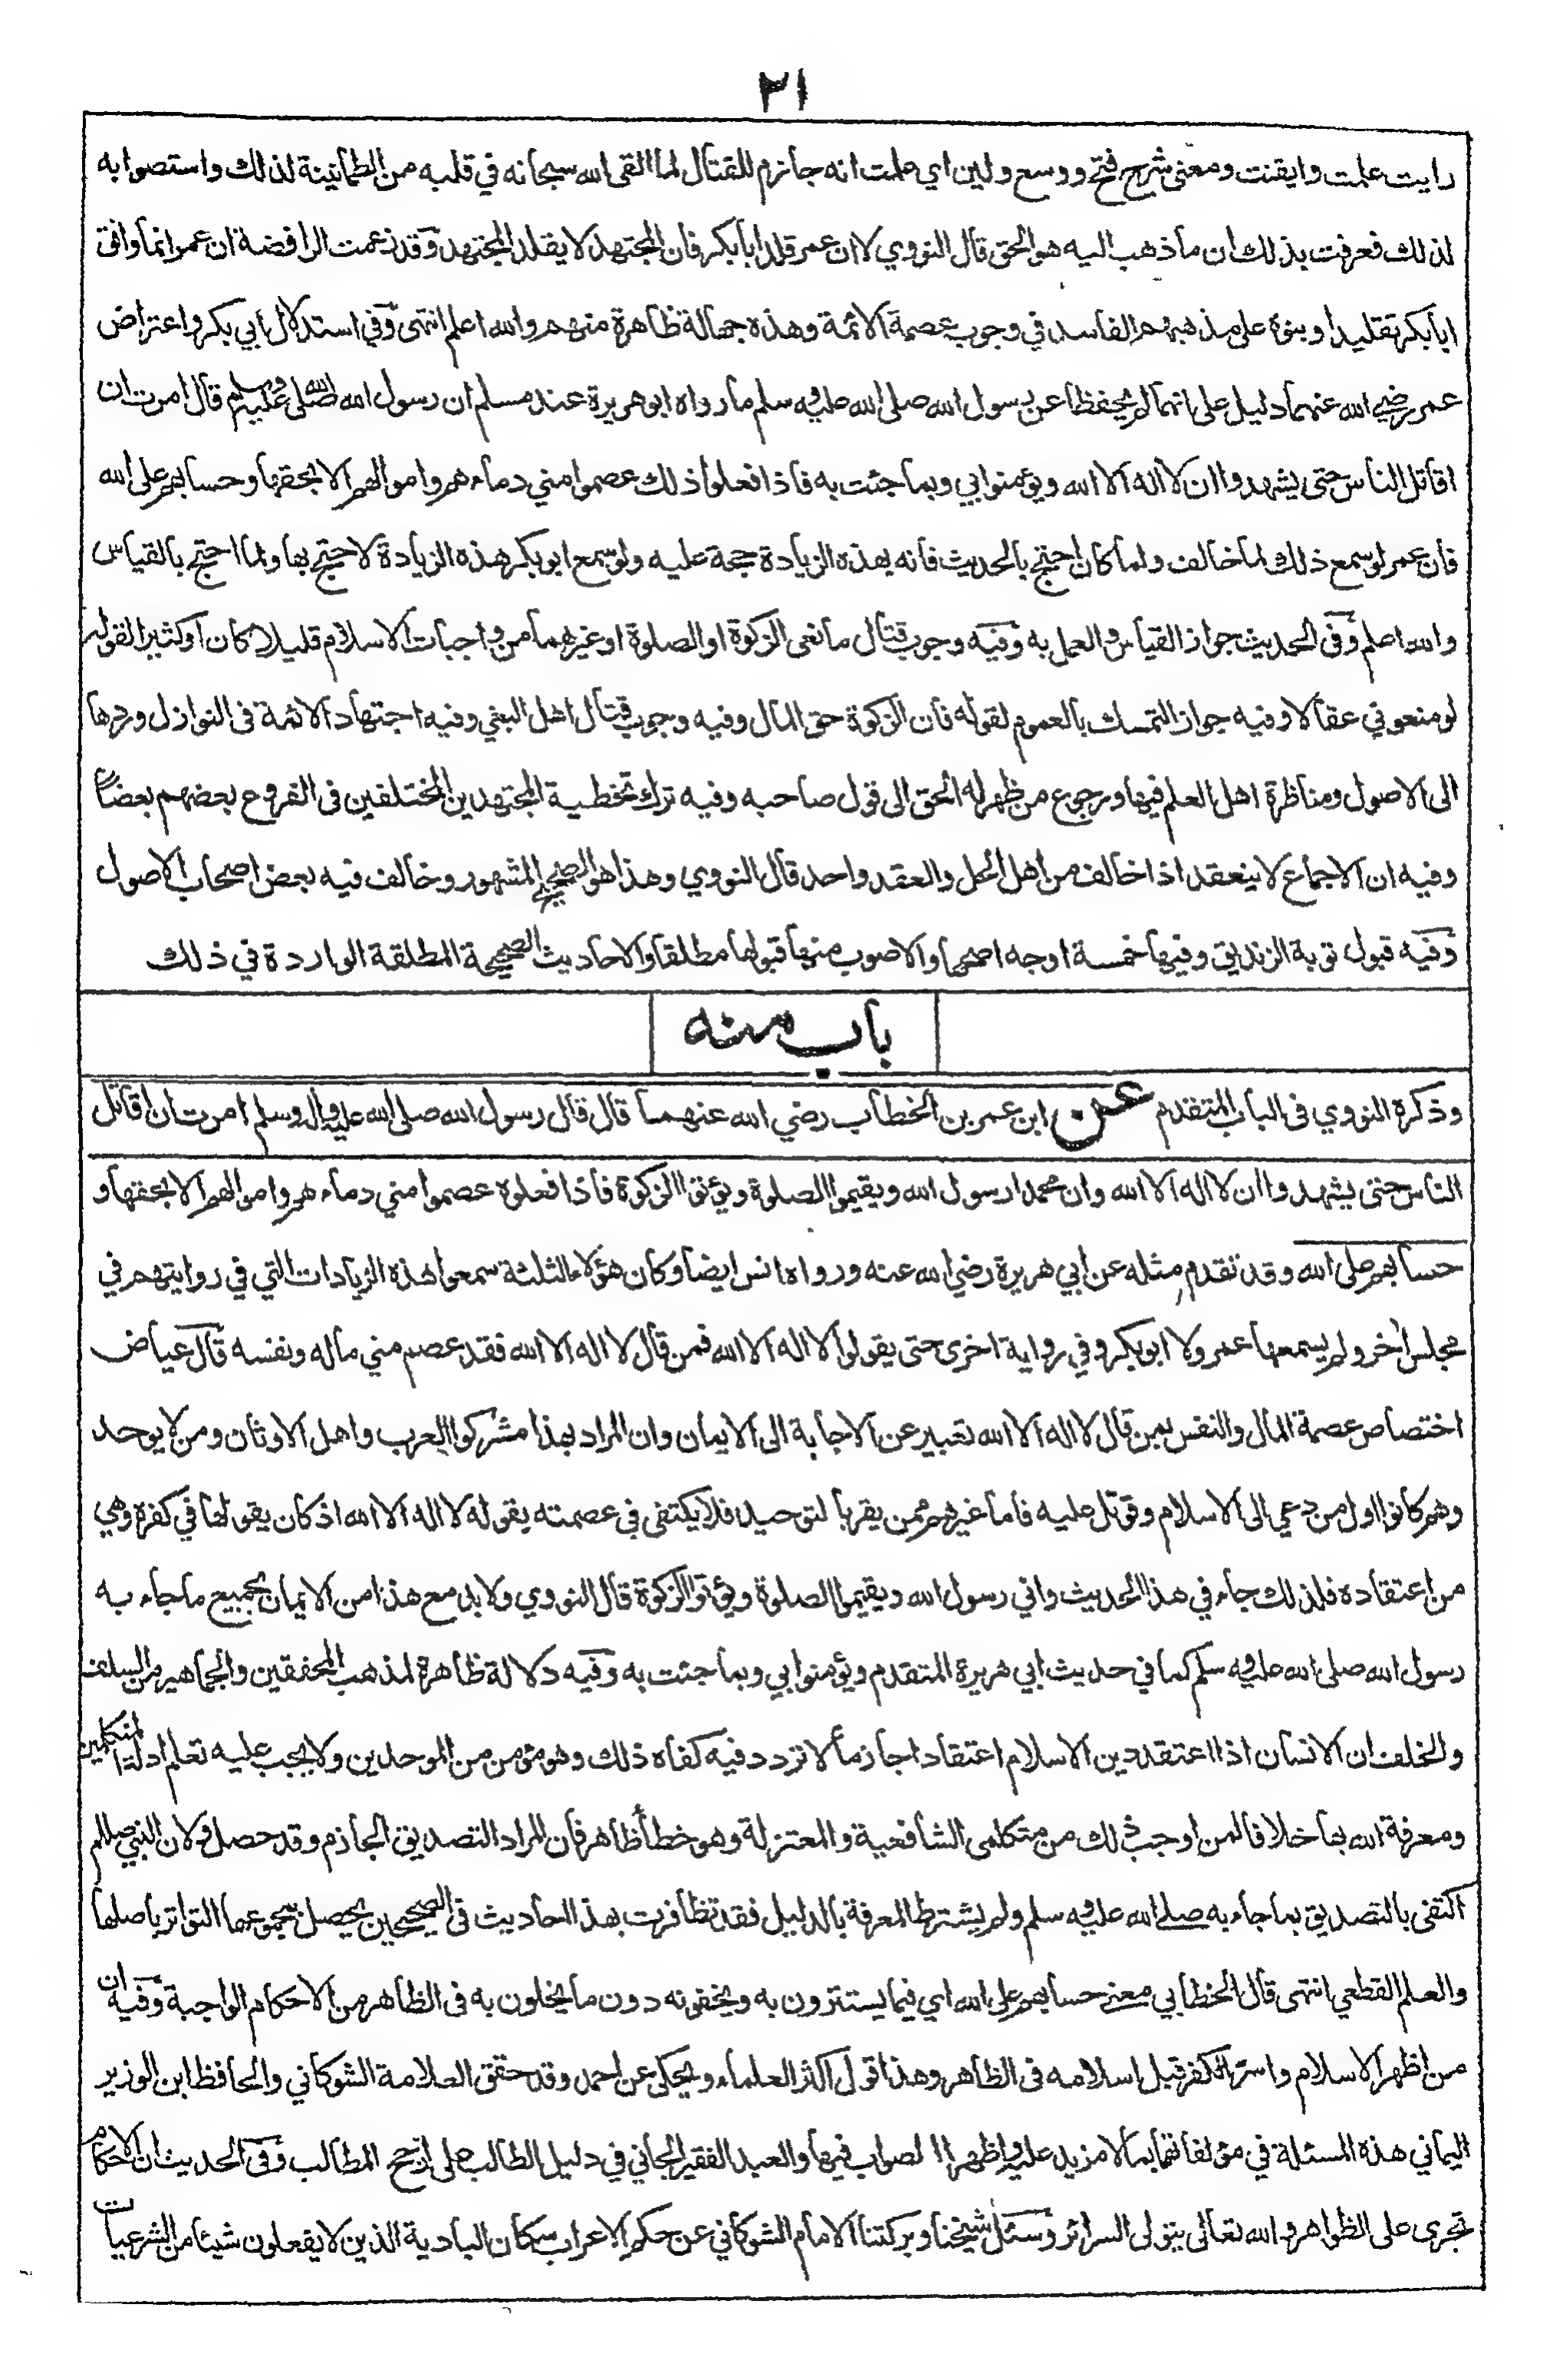 ٢١
رايت علمت وايقنت ومعنى شرح فتح ووسع ولين اي علمت انه جازم للقتال لما القى الله سبحانه في قلبه من الطمانينة لذلك واستصوابه
لذلك فعرفت بذلك ان ما ذهب اليه هو الحق قال النووي لا ان عمر قلد ابا بكر فان المجتهد لا يقلد المجتهد وقد زعمت الرافضة ان عمر انما وافق
ابا بكر تقليدا وبنوه على مذهبهم الفاسد في وجوب عصمة الائمة وهذه جهالة ظاهرة منهم والله اعلم انتهى وفي استدلال ابي بكر واعتراض
عمر رضي الله عنهما دليل على انهما لم يحفظا عن رسول الله صلى الله عليه وسلم ما رواه ابو هريرة عند مسلم ان رسول الله صلى الله عليه وسلم قال امرت ان
اقاتل الناس حتى يشهدوا ان لا اله الا الله ويؤمنوا بي وبما جئت به فاذا فعلوا ذلك عصموا مني دماءهم واموالهم الا بحقها وحسابهم على الله
فان عمر لو سمع ذلك لما خالف ولما كان احتج بالحديث فانه بهذه الزيادة حجة عليه ولو سمع ابو بكر هذه الزيادة لاحتج بها ولما احتج بالقياس
والله اعلم وفى الحديث جواز القياس والعمل به وفيه وجوب قتال مانعى الزكوة او الصلوة او غيرهما من واجبات الاسلام قليلا كان او كثيرا لقوله
لو منعوني عقالا وفيه جواز التمسك بالعموم لقوله فان الزكوة حق المال وفيه وجوب قتال اهل البغي وفيه اجتهاد الائمة فى النوازل وردها
الى الاصول ومناظرة اهل العلم فيها ورجوع من ظهر له الحق الى قول صاحبه وفيه ترك تخطية المجتهدين المختلفين فى الفروع بعضهم بعضا
وفيه ان الاجماع لا ينعقد اذا خالف من اهل الحل والعقد واحد قال النووي وهذا هو الصحيح المشهور وخالف فيه بعض اصحاب الاصول
وفيه قبول توبة الزنديق وفيها خمسة اوجه اصحها والاصوب منها قبولها مطلقا والاحاديث الصحيحة المطلقة الواردة في ذلك
باب منه
وذكره النووي فى الباب المتقدم عن ابن عمر بن الخطاب رضي الله عنهما قال قال رسول الله صلى الله عليه واله وسلم امرت ان اقاتل
الناس حتى يشهدوا ان لا اله الا الله وان محمدا رسول الله ويقيموا الصلوة ويؤتوا الزكوة فاذا فعلوه عصموا مني دماءهم واموالهم الا بحقها و
حسابهم على الله وقد تقدم مثله عن ابي هريرة رضي الله عنه ورواه انس ايضا وكان هؤلاء الثلثة سمعوا هذه الزيادات التي في روايتهم في
مجلس اخر ولم يسمعها عمر ولا ابو بكر وفي رواية اخرى حتى يقولوا لا اله الا الله فمن قال لا اله الا الله فقد عصم مني ماله ونفسه قال عياض
اختصاص عصمة المال والنفس بمن قال لا اله الا الله تعبير عن الاجابة الى الايمان وان المراد بهذا مشركوا العرب واهل الاوثان ومن لا يوحد
وهم كانوا اول من دعي الى الاسلام وقوتل عليه فاما غيرهم ممن يقر بالتوحيد فلا يكتفى في عصمته بقوله لا اله الا الله اذ كان يقولها في كفره وهي
من اعتقاده فلذلك جاء في هذا الحديث واني رسول الله ويقيموا الصلوة ويؤتوا الزكوة قال النووي ولا بد مع هذا من الايمان بجميع ما جاء به
رسول الله صلى الله عليه وسلم كما في حديث ابي هريرة المتقدم ويؤمنوا بي وبما جئت به وفيه دلالة ظاهرة لمذهب المحققين والجماهير من السلف
والخلف ان الانسان اذا اعتقد دين الاسلام اعتقادا جازما لا تردد فيه كفاه ذلك وهو مؤمن من الموحدين ولا يجب عليه تعلم ادلة المتكلمين
ومعرفة الله بها خلافا لمن اوجب ذلك من متكلمى الشافعية والمعتزلة وهو خطأ ظاهر فان المراد التصديق الجازم وقد حصل ولان النبي صللم
اكتفى بالتصديق بما جاء به صلى الله عليه وسلم ولم يشترط المعرفة بالدليل فقد تظافرت بهذا احاديث فى الصحيحين يحصل بمجموعها التواتر باصلها
والعلم القطعي انتهى قال الخطابي معنى حسابهم على الله اي فيما يستترون به ويخفونه دون ما يخلون به فى الظاهر من الاحكام الواجبة وفيه ان
من اظهر الاسلام واستر الكفر قبل اسلامه فى الظاهر وهذا قول اكثر العلماء ويحكى عن احمد وقد حقق العلامة الشوكاني والحافظ ابن الوزير
اليماني هذه المسئلة في مؤلفاتهما بما لا مزيد عليه واظهرا الصواب فيها والعبد الفقير الجاني في دليل الطالب على ارجح المطالب وفى الحديث ان الاحكام
تجرى على الظواهر والله تعالى يتولى السرائر وسئل شيخنا وبركتنا الامام الشوكاني عن حكم الاعراب سكان البادية الذين لا يفعلون شيئا من الشرعيات